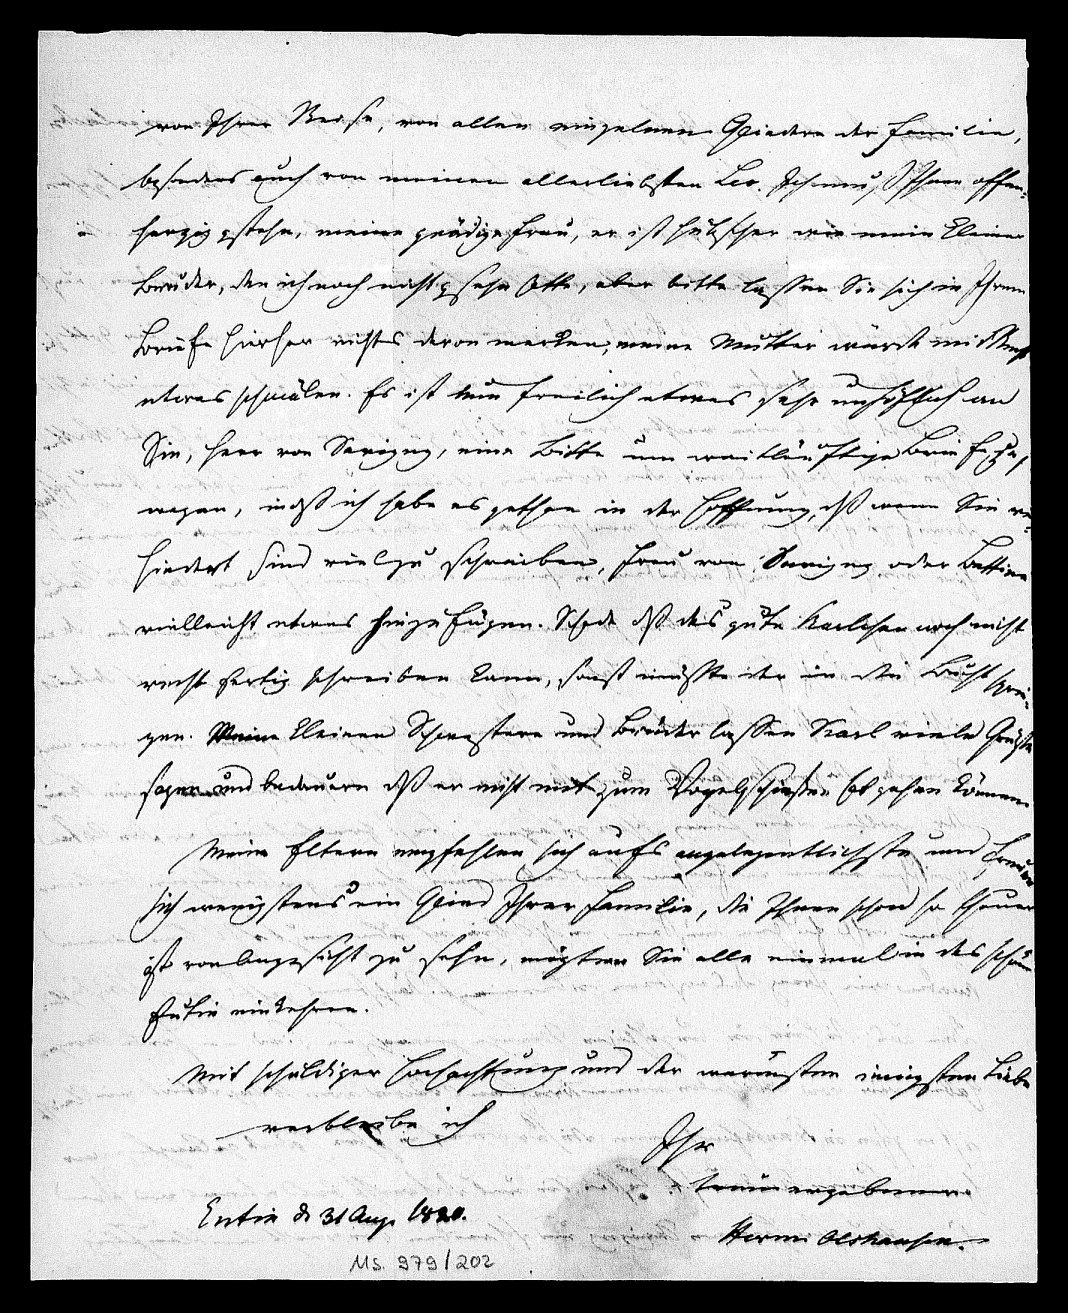 von Ihrer Reise, von allen einzelnen Gliedern der Familie,
besonders auch von meinem allerliebsten Leo. Ich muß Ihnen offen-
herzig gestehn, meine gnädige Frau, er ist hübscher wie mein kleiner
Bruder, den ich noch nicht gesehn hatte, aber bitte lassen Sie sich in Ihrem
Briefe hierher nichts davon merken, meine Mutter würde mich sonst
etwas schmälen. Es ist nun freilich etwas sehr unhöflich an
Sie, Herr von Savigny, eine Bitte um weitläuftige Briefe zu
wagen, indeß ich habe es gethan in der Hoffnung, daß wenn Sie ver-
hindert sind viel zu schreiben, Frau von Savigny oder Bettine
vielleicht etwas hinzufügen. Schade daß das gute Karlchen noch nicht
recht fertig schreiben kann, sonst müßte der in die Bucht sprin-
gen. Meine kleinen Schwestern und Brüder lassen Karl viele Grüße
sagen und bedauern daß er nicht mit zum Vogelschießen hat gehen können.
Meine Eltern empfehlen sich aufs angelegentlichste und freuen
sich wenigstens ein Glied Ihrer Familie, die Ihnen schon so theuer
ist von Angesicht zu sehn, möchten Sie alle einmal in das schöne
Eutin einkehren.
Mit schuldiger Hochachtung und der wärmsten innigsten Liebe
verbleibe ich
Ihr
treu ergebener
Herm. Olshausen.
Eutin d 31 Aug. 1820.
Ms. 979/202